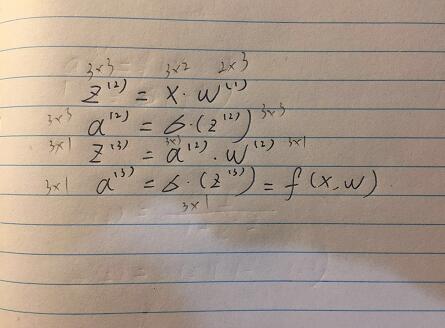 3×3 3×2 2×3
z⁽²⁾ = X · W⁽¹⁾
3×3 a⁽²⁾ = σ·(z⁽²⁾) 3×3
3×1 z⁽³⁾ = a⁽²⁾ · W⁽²⁾ 3×1
3×1 a⁽³⁾ = σ·(z⁽³⁾) = f(X,W)
3×1